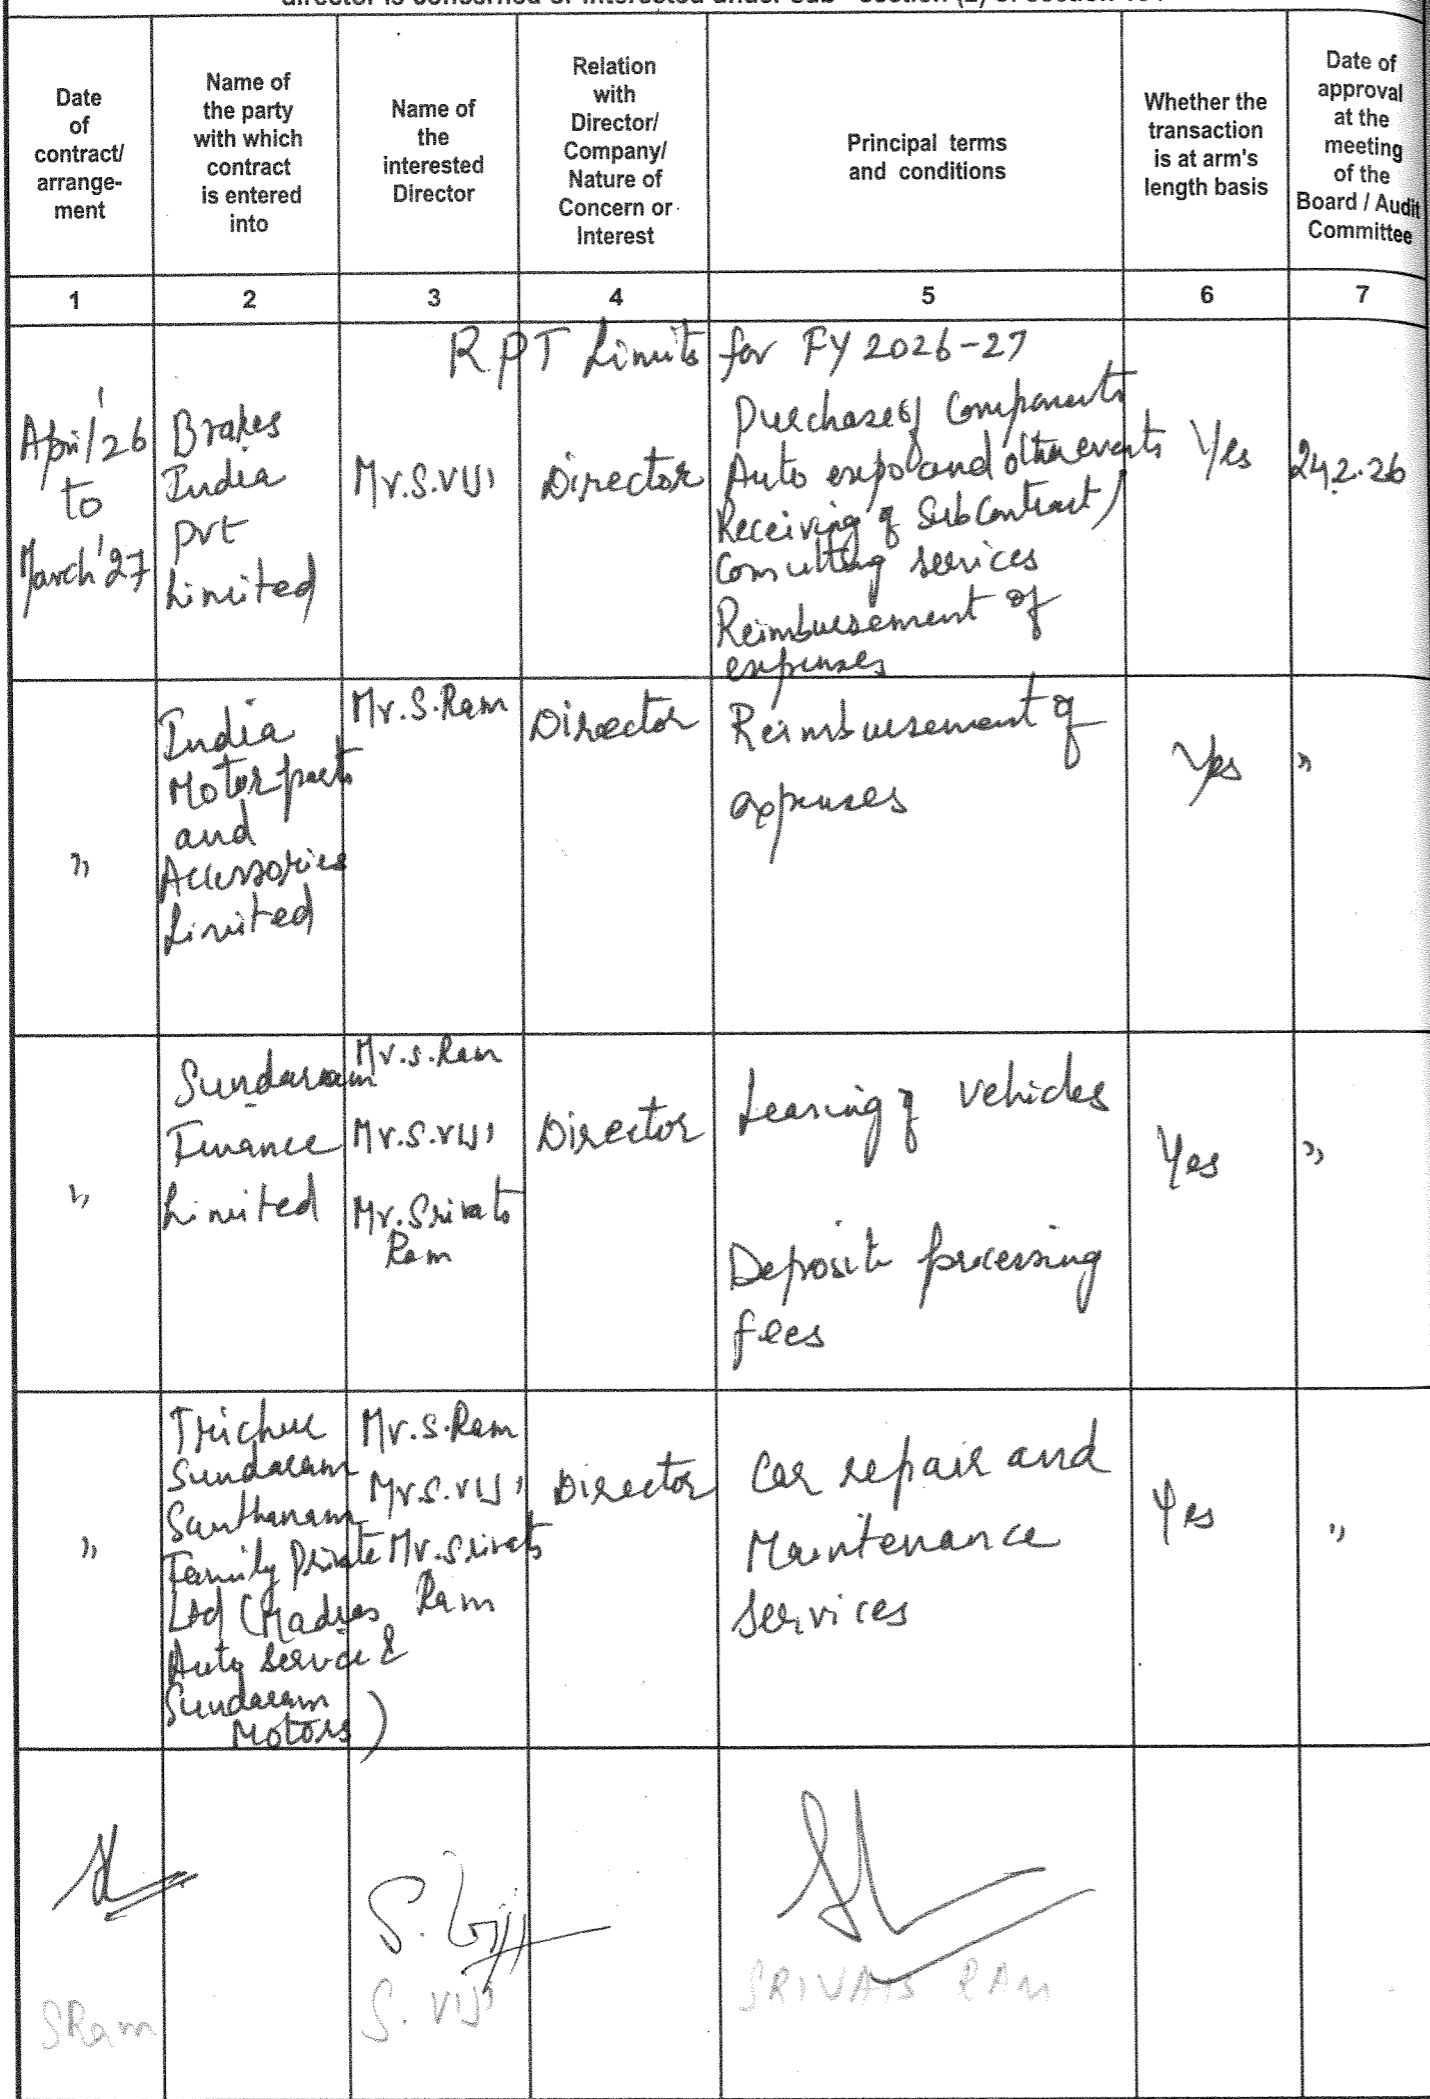 director is concerned or interested under sub - section (2) of section 184
Date
of
contract/
arrange-
ment
Name of
the party
with which
contract
is entered
into
Name of
the
interested
Director
Relation
with
Director/
Company/
Nature of
Concern or
Interest
Principal terms
and conditions
Whether the
transaction
is at arm's
length basis
Date of
approval
at the
meeting
of the
Board / Audit
Committee
1 2 3 4 5 6 7
RPT Limits for FY 2026-27
April'26
to
March'27
Brakes
India
Pvt
Limited
Mr.S.Viji
Director
Purchase of Components
Auto expo and other events
Receiving of Subcontract/
Consulting services
Reimbursement of
expenses
Yes
24.2.26
"
India
Motor parts
and
Accessories
Limited
Mr.S.Ram
Director
Reimbursement of
expenses
Yes
"
"
Sundaram
Finance
Limited
Mr.S.Ram
Mr.S.Viji
Mr.Srivats
Ram
Director
Leasing of vehicles
Deposit processing
fees
Yes
"
"
Trichur
Sundaram
Santhanam
Family Private
Ltd (Madras
Auto Service &
Sundaram
Motors)
Mr.S.Ram
Mr.S.Viji
Mr.Srivats
Ram
Director
Car repair and
Maintenance
Services
Yes
"
S. Viji
SRam
S. VIJI
SRIVATS RAM